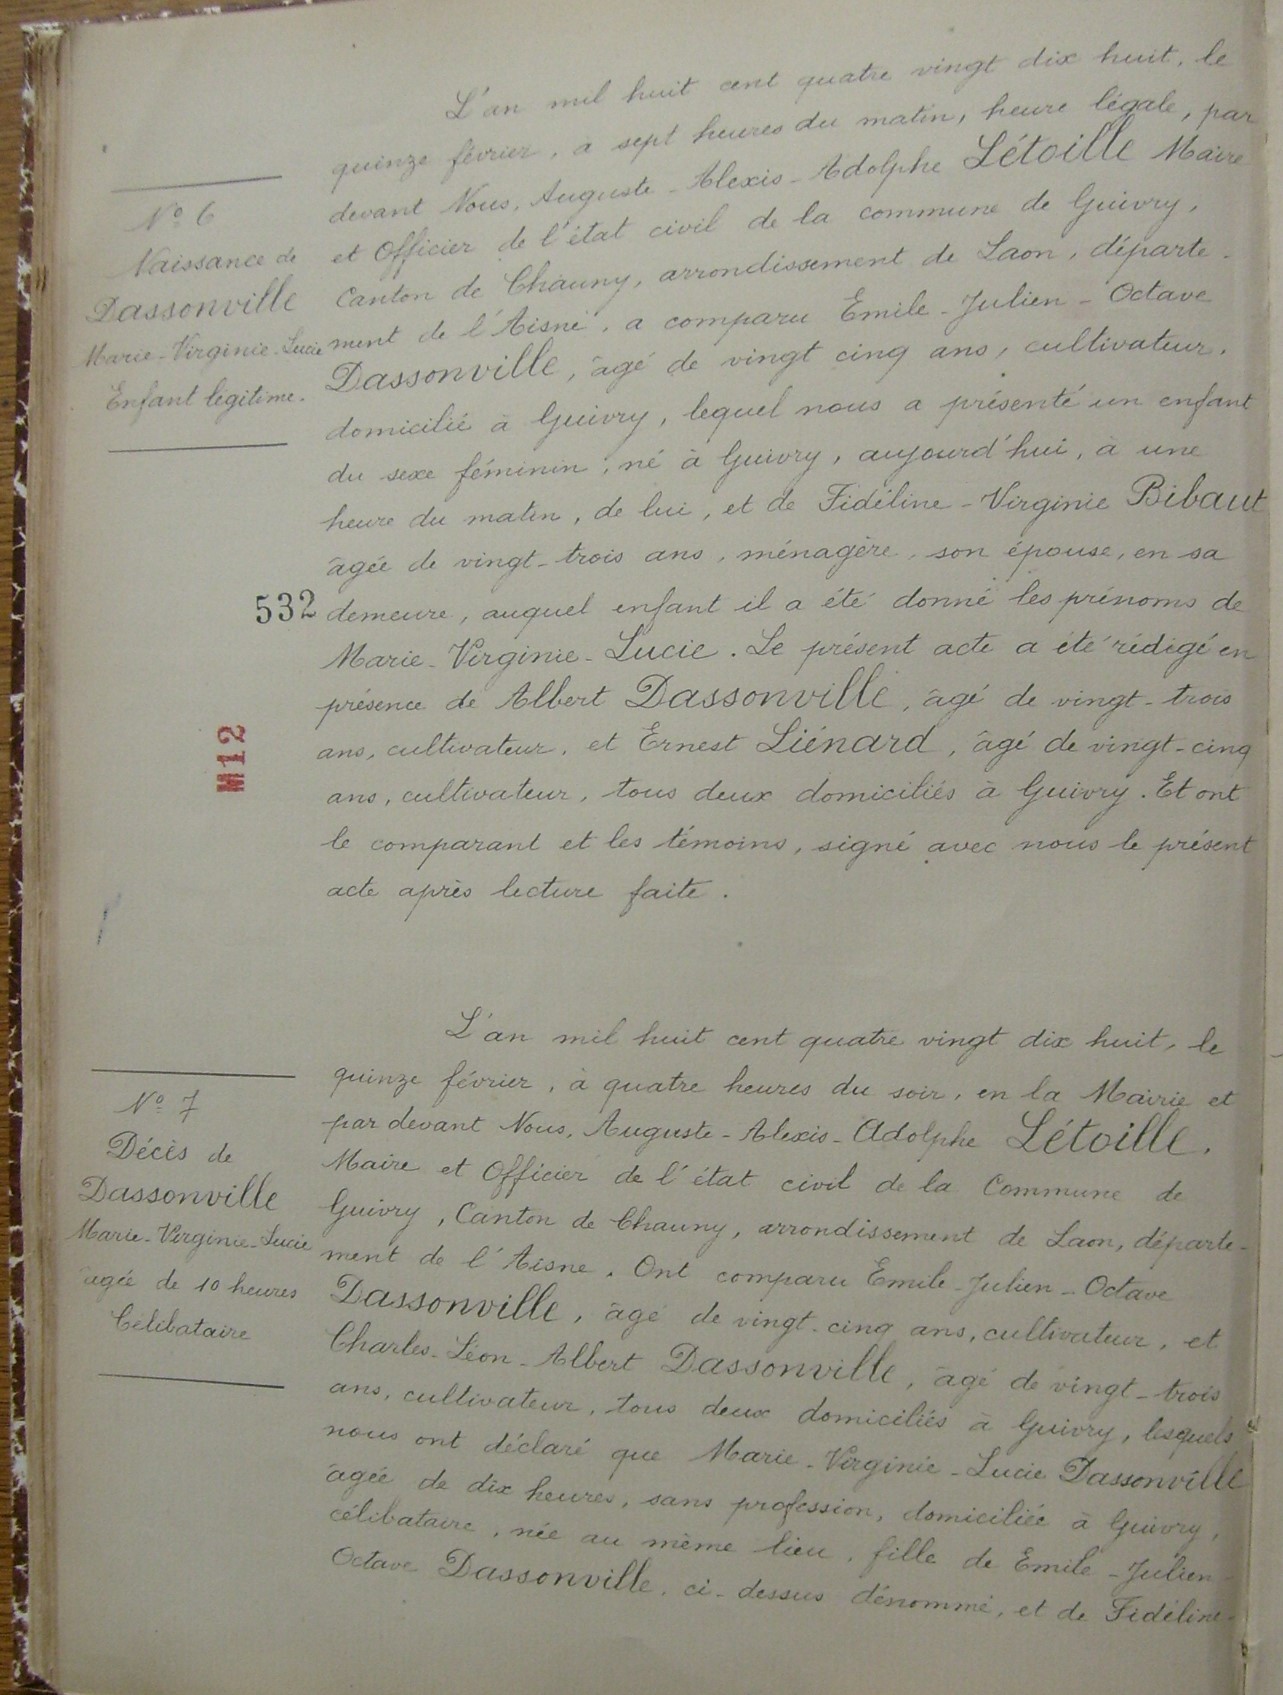 L'an mil huit cent quatre vingt dix huit, le
quinze février, à sept heures du matin, heure légale, par
devant Nous, Auguste-Alexis-Adolphe Létoille Maire
et Officier de l'état civil de la commune de Guivry,
Canton de Chauny, arrondissement de Laon, départe-
ment de l'Aisne, a comparu Emile-Julien-Octave
Dassonville, âgé de vingt cinq ans, cultivateur,
domicilié à Guivry, lequel nous a présenté un enfant
du sexe féminin, né à Guivry, aujourd'hui, à une
heure du matin, de lui, et de Fidéline-Virginie Bibaut
âgée de vingt-trois ans, ménagère, son épouse, en sa
demeure, auquel enfant il a été donné les prénoms de
Marie-Virginie-Lucie. Le présent acte a été rédigé en
présence de Albert Dassonville, âgé de vingt-trois
ans, cultivateur, et Ernest Liénard, âgé de vingt-cinq
ans, cultivateur, tous deux domiciliés à Guivry. Et ont
le comparant et les témoins, signé avec nous le présent
acte après lecture faite.
Nº 6
Naissance de
Dassonville
Marie-Virginie-Lucie
Enfant légitime.
532
M12
L'an mil huit cent quatre vingt dix huit, le
quinze février, à quatre heures du soir, en la Mairie et
par devant Nous, Auguste-Alexis-Adolphe Létoille,
Maire et Officier de l'état civil de la Commune de
Guivry, Canton de Chauny, arrondissement de Laon, départe-
ment de l'Aisne. Ont comparu Emile-Julien-Octave
Dassonville, âgé de vingt-cinq ans, cultivateur, et
Charles-Léon-Albert Dassonville, âgé de vingt-trois
ans, cultivateur, tous deux domiciliés à Guivry, lesquels
nous ont déclaré que Marie-Virginie-Lucie Dassonville
âgée de dix heures, sans profession, domiciliée à Guivry,
célibataire, née au même lieu, fille de Emile-Julien-
Octave Dassonville, ci-dessus dénommé, et de Fidéline-
Nº 7
Décès de
Dassonville
Marie-Virginie-Lucie
âgée de 10 heures
Célibataire